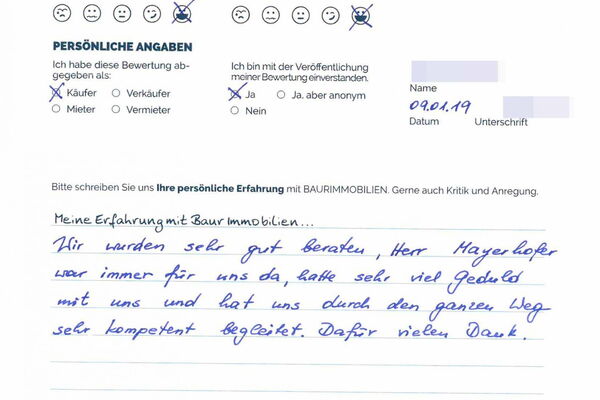 PERSÖNLICHE ANGABEN
Ich habe diese Bewertung ab-
gegeben als:
Käufer Verkäufer
Mieter Vermieter
Ich bin mit der Veröffentlichung
meiner Bewertung einverstanden.
Ja Ja, aber anonym
Nein
Name
09.01.19
Datum Unterschrift
Bitte schreiben Sie uns Ihre persönliche Erfahrung mit BAURIMMOBILIEN. Gerne auch Kritik und Anregung.
Meine Erfahrung mit Baur Immobilien...
Wir wurden sehr gut beraten, Herr Mayerhofer
war immer für uns da, hatte sehr viel Geduld
mit uns und hat uns durch den ganzen Weg
sehr kompetent begleitet. Dafür vielen Dank.